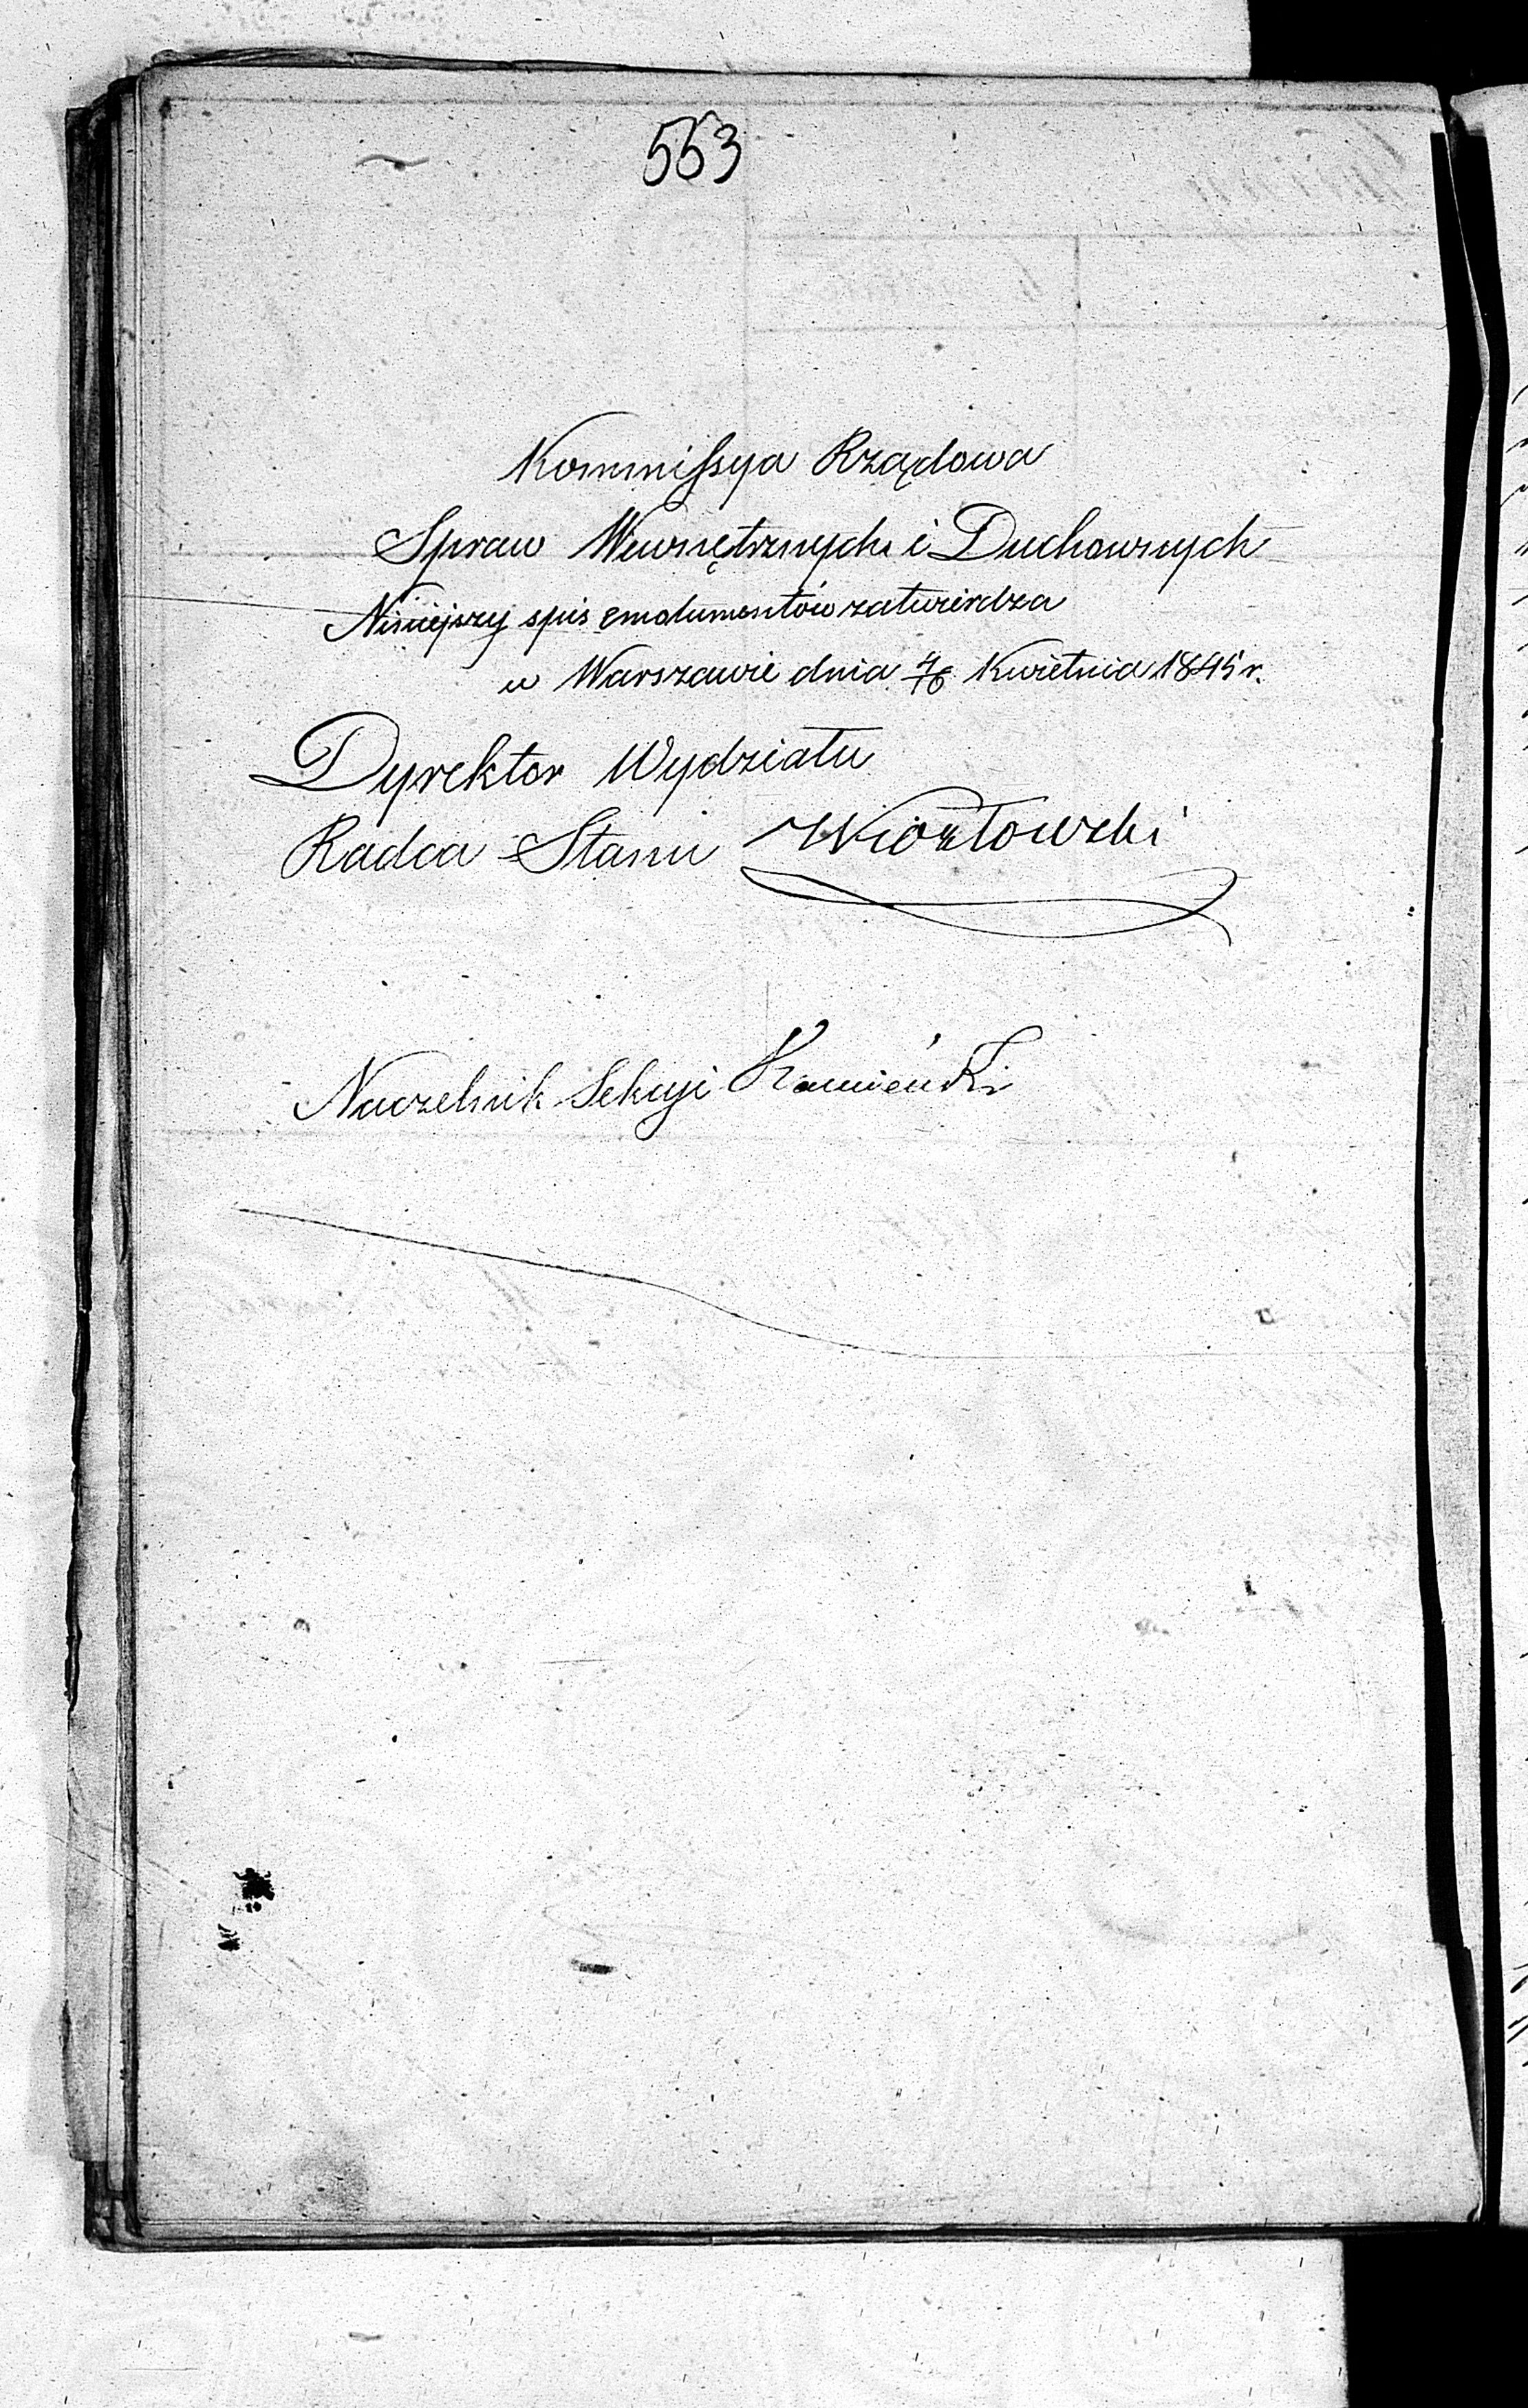 553
Kommissya Rządowa
Spraw Wewnętrznych i Duchownych
Niniejszy spis emolumentów zatwierdza
w Warszawie dnia Kwietnia 1845 r.
Dyrektor Wydziału
Radca Stanu
Naczelnik Sekcyi Kamieński